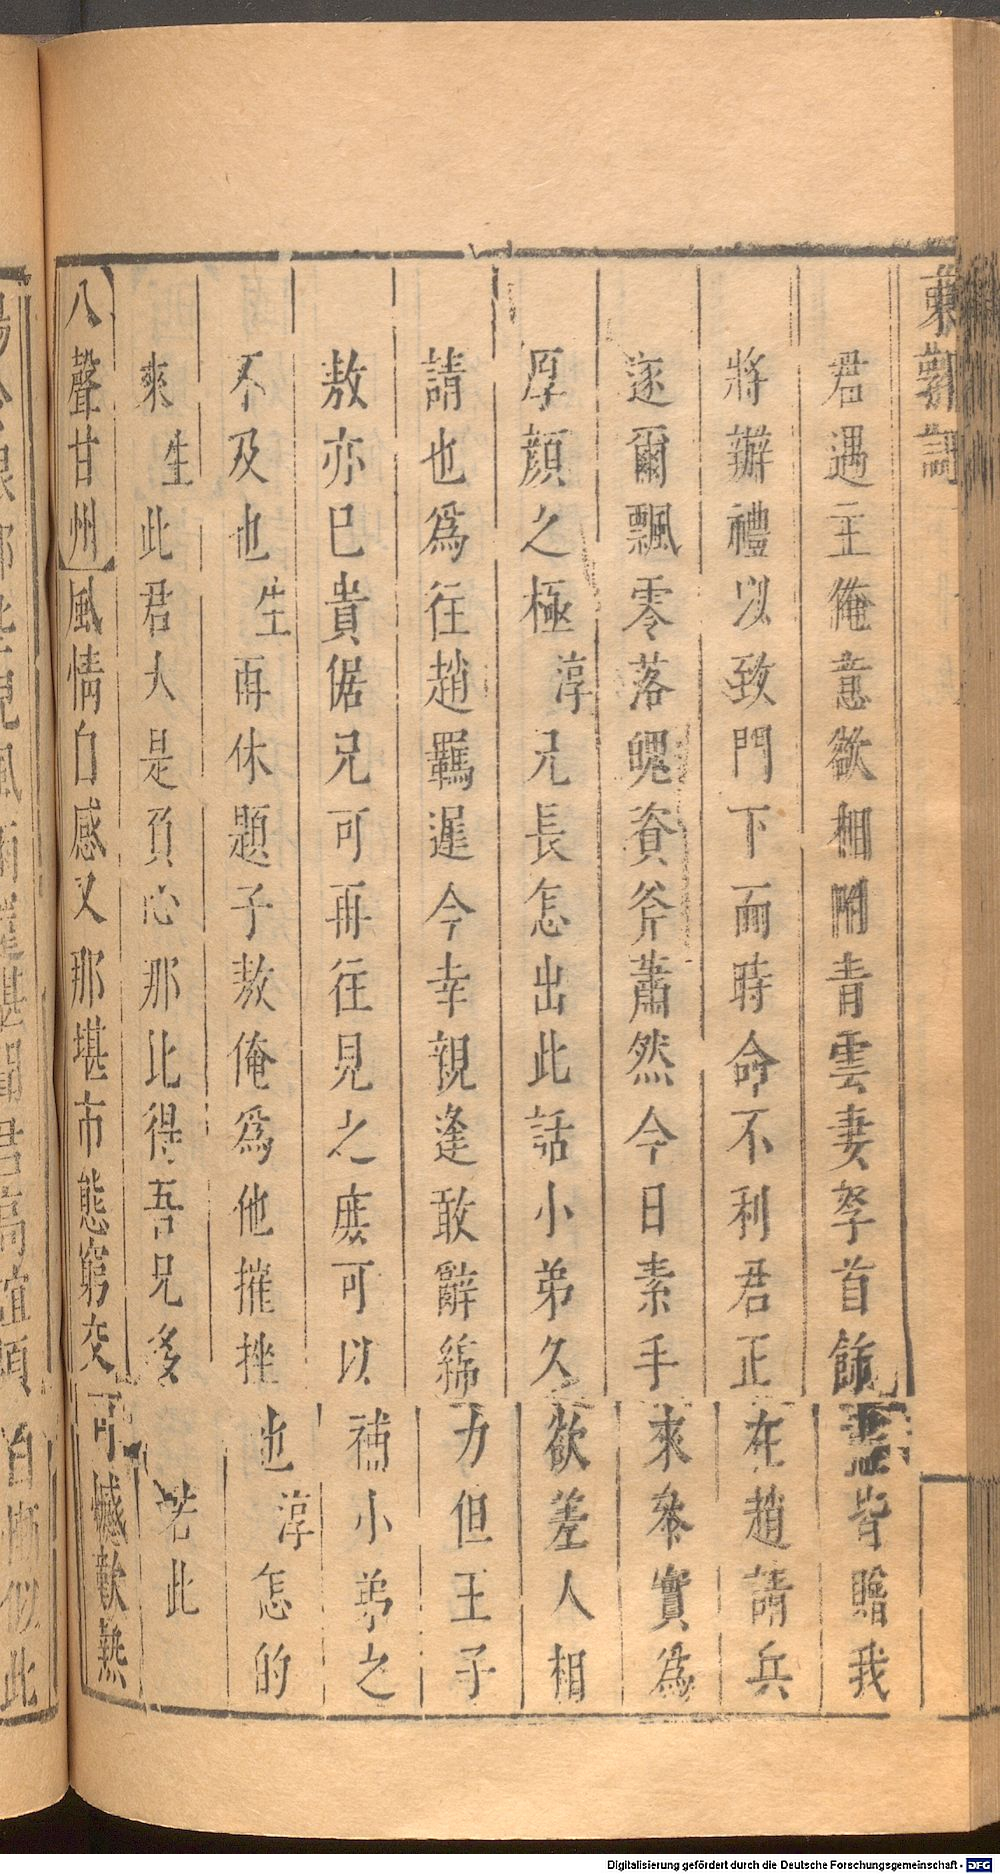 東郭記
君遇主俺意欲相附青雲妻孥首餙盡皆贈我
將辦禮以致門下而時命不利君正在趙請兵
逐爾飄零落魄資斧蕭然今日素手來叅實為
厚顔之極淳兄長怎出此話小弟久欲差人相
請也為徃趙羈遲今幸親逢敢辭綿力但王子
敖亦巳貴倨兄可再徃見之庻可以補小弟之
不及也生再休題子敖俺為他摧挫也淳怎的
來生此君大是負心那比得吾兄多若此
八聲甘州風情自感又那堪市態窮交可憾歎熱
Digitalisierung gefördert durch die Deutsche Forschungsgemeinschaft - DFG